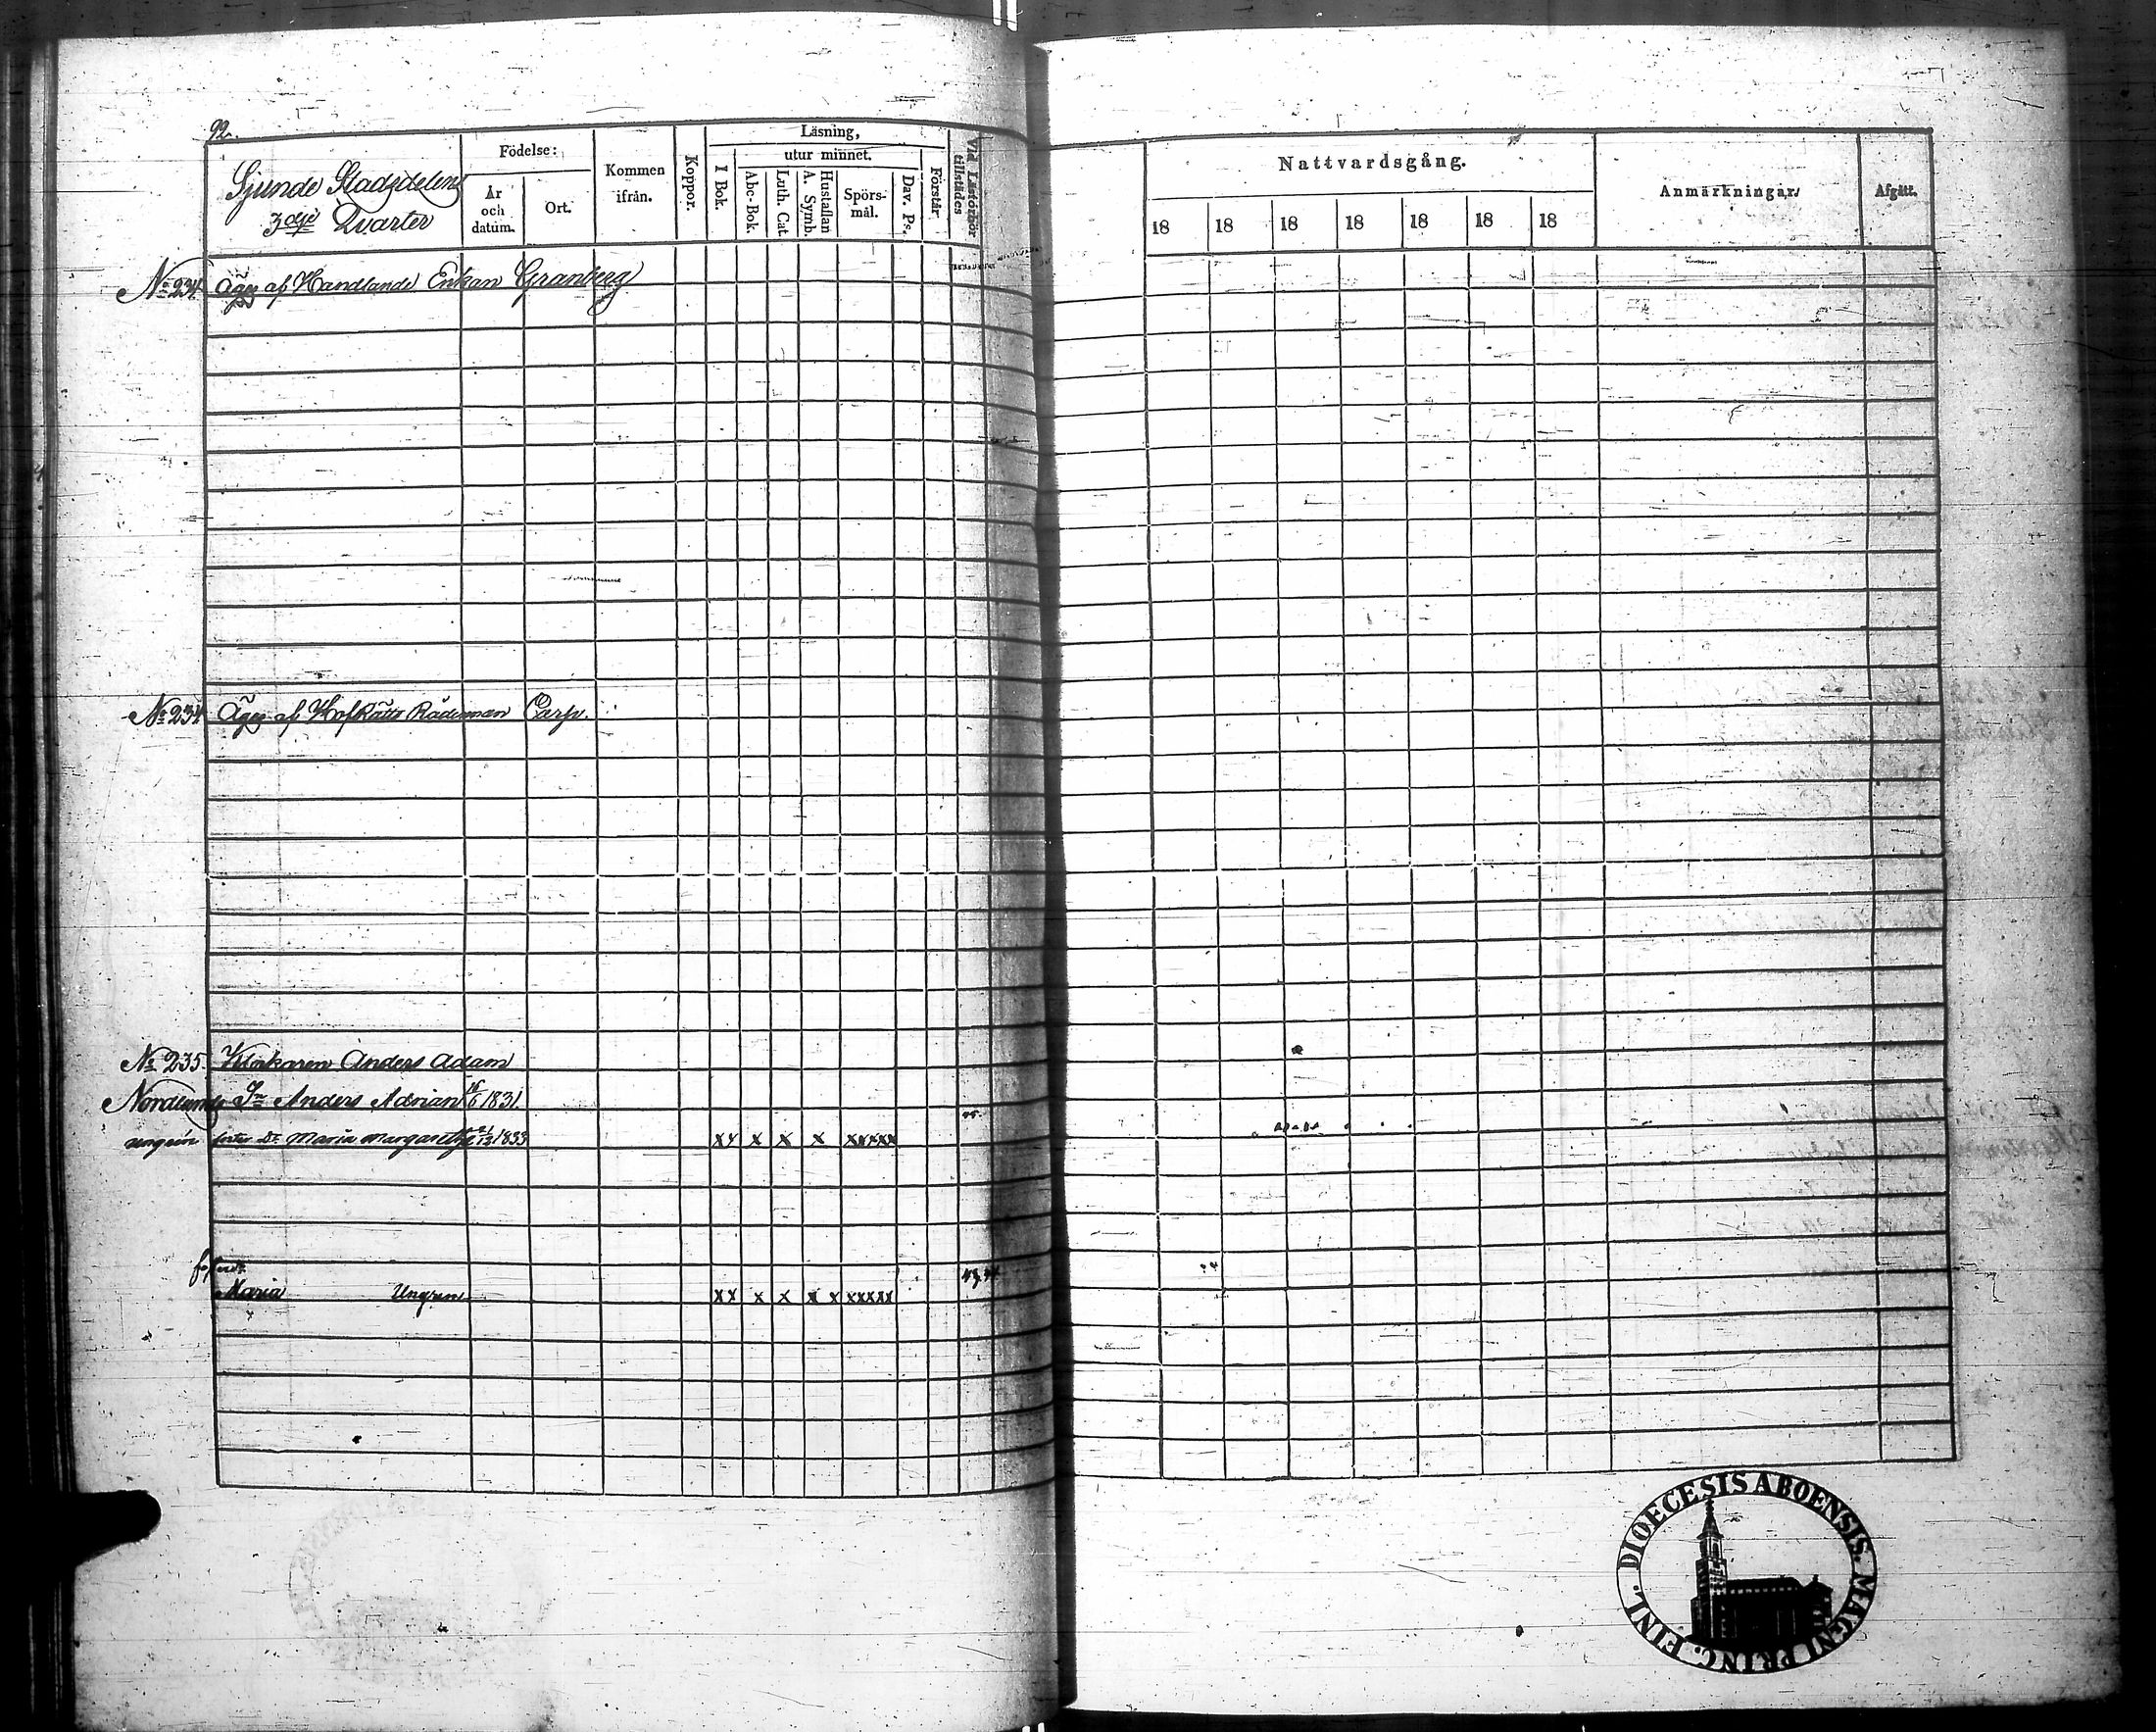 92.
Sjunde Stadsdelens
3dje Qvarter
Födelse:
År och datum.
Ort.
Kommen ifrån.
Koppor.
Läsning,
I Bok.
utur minnet.
Abc-Bok.
Luth. Cat.
Hustaflan A. Symb.
Spörs-mål.
Dav. Ps.
Förstår
Vid Läsförhör tillstädes
Nattvardsgång.
18 18 18 18 18 18 18
Anmärkningar
Afgått.
No 234 Äges af Handlande Enkan Granberg
No 234 Äges af HofRätts Rådman Carp.
No 235. Anders Adam
Nordlunds Sn Anders Adrian 16/6 1831.
Dr Maria Margaretha 21/12 1833 xx x x x xxxxx 45.
Maria Ungren xx x x x x xxxxx
DIOECESIS ABOENSIS. MAGNI PRINC. FINL.